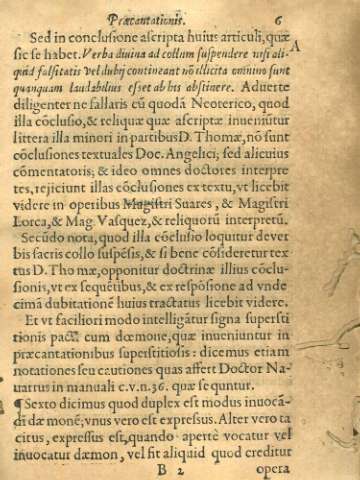 Præcantationis. 6
Sed in conclusione ascripta huius articuli, quæ
sic se habet. Verba diuina ad collum suspendere nisi ali-
quid falsitatis vel dubij contineant nō illicita omnino sunt
quanquam laudabilius esset ab his abstinere. Aduerte
diligenter ne fallaris cū quodā Neoterico, quod
illa cōclusio, & reliquæ quæ ascriptæ inueniūtur
littera illa minori in partibus D. Thomæ, nō sunt
cōclusiones textuales Doc. Angelici; sed alicuius
cōmentatoris; & ideo omnes doctores interpre
tes, rejiciunt illas cōclusiones ex textu, vt licebit
videre in operibus Magistri Suares, & Magistri
Lorca, & Mag. Vasquez, & reliquorū interpretū.
Secūdo nota, quod illa cōclusio loquitur de ver
bis sacris collo suspēsis, & si bene cōsideretur tex
tus D. Thomæ, opponitur doctrinæ illius cōclu-
sionis, vt ex sequētibus, & ex respōsione ad vnde
cimā dubitationē huius tractatus licebit videre.
Et vt faciliori modo intelligātur signa supersti
tionis pacti cum dæmone, quæ inueniuntur in
præcantationibus superstitiosis: dicemus etiam
notationes seu cautiones quas affert Doctor Na-
uarrus in manuali c. v. n. 36. quæ sequntur.
¶Sexto dicimus quod duplex est modus inuocā-
di dæmonē; vnus vero est expressus. Alter vero ta
citus, expressus est, quando apertè vocatur vel
inuocatur dæmon, vel sit aliquid quod creditur
B 2 opera
A